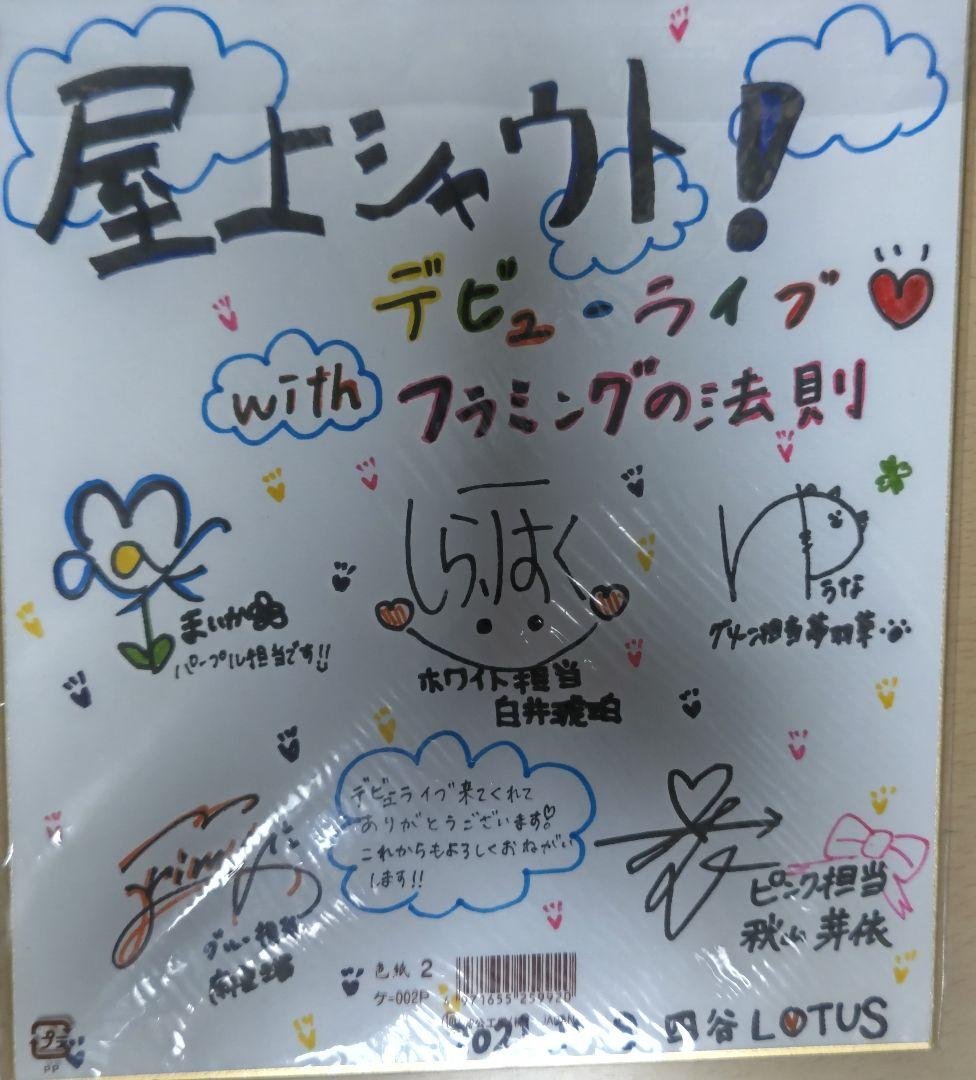 屋上シャウト!
デビューライブ
with フラミングの法則
しらはく
ゆうな
まいか
パープル担当です!!
グリーン担当夢羽菜
ホワイト担当
白井琥珀
デビューライブ来てくれて
ありがとうございます!
これからもよろしくおねがい
します!!
ブルー担当
ピンク担当
秋山芽依
色紙 2
ケ-002P
4 971655 259920
JAPAN
四谷LOTUS
プラ
PP